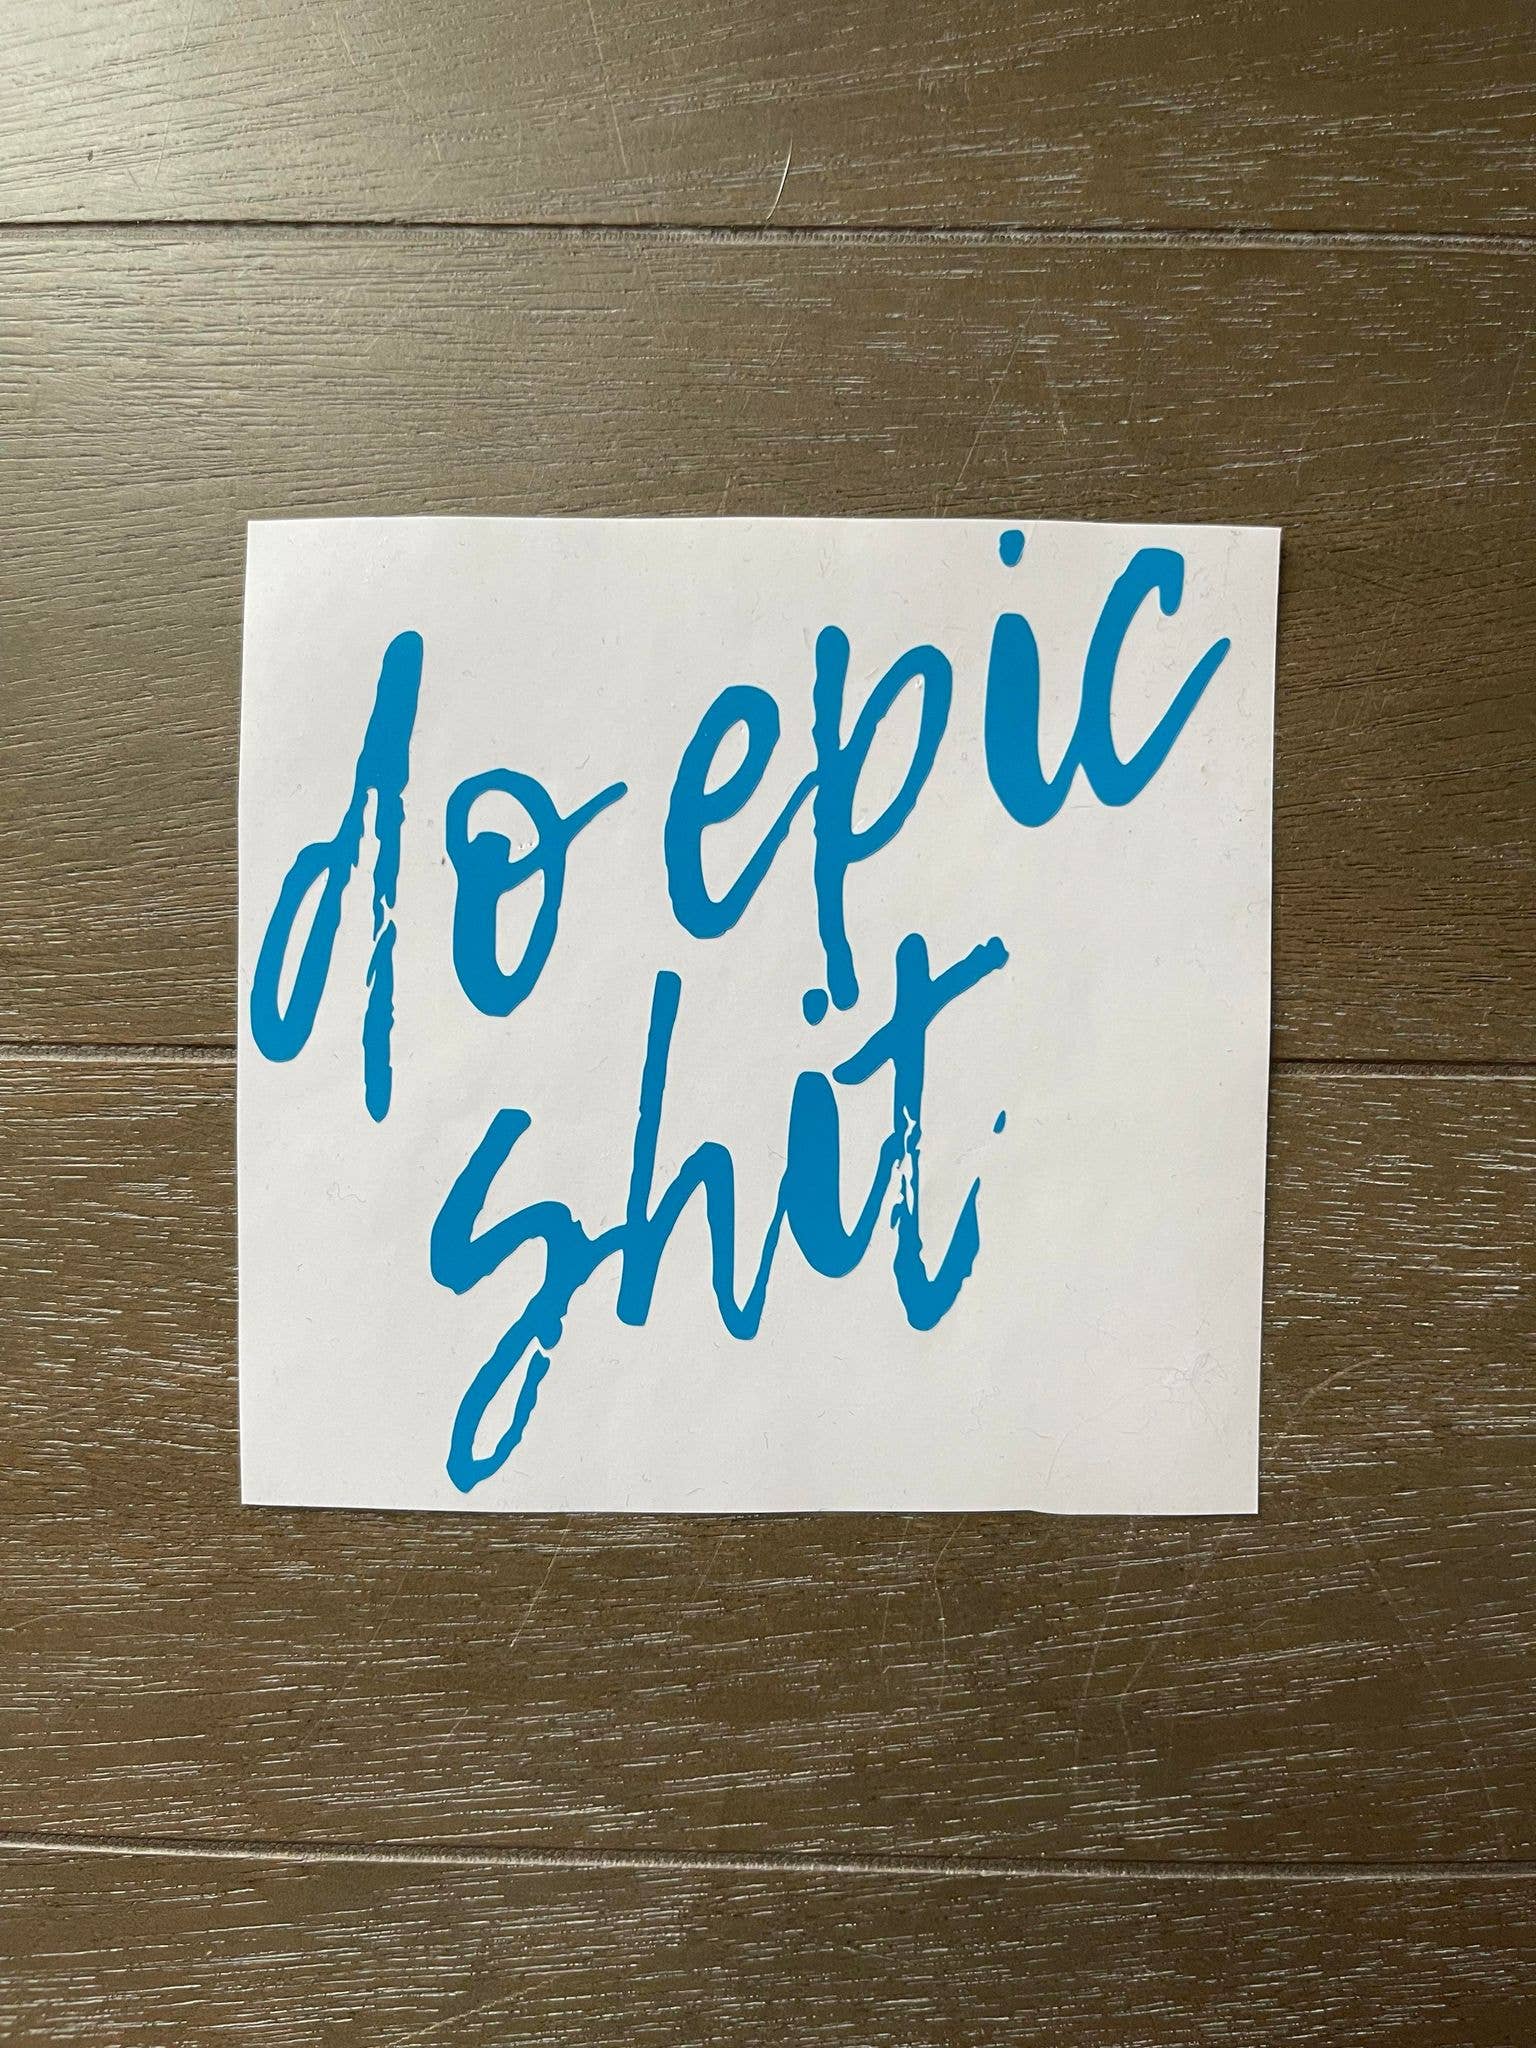 do epic
shit